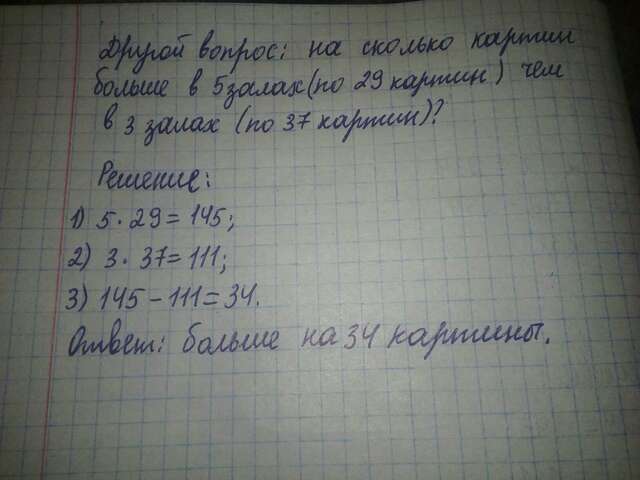 Другой вопрос: на сколько картин
больше в 5 залах (по 29 картин) чем
в 3 залах (по 37 картин)?
Решение:
1) 5 · 29 = 145;
2) 3 · 37 = 111;
3) 145 - 111 = 34.
Ответ: больше на 34 картины.